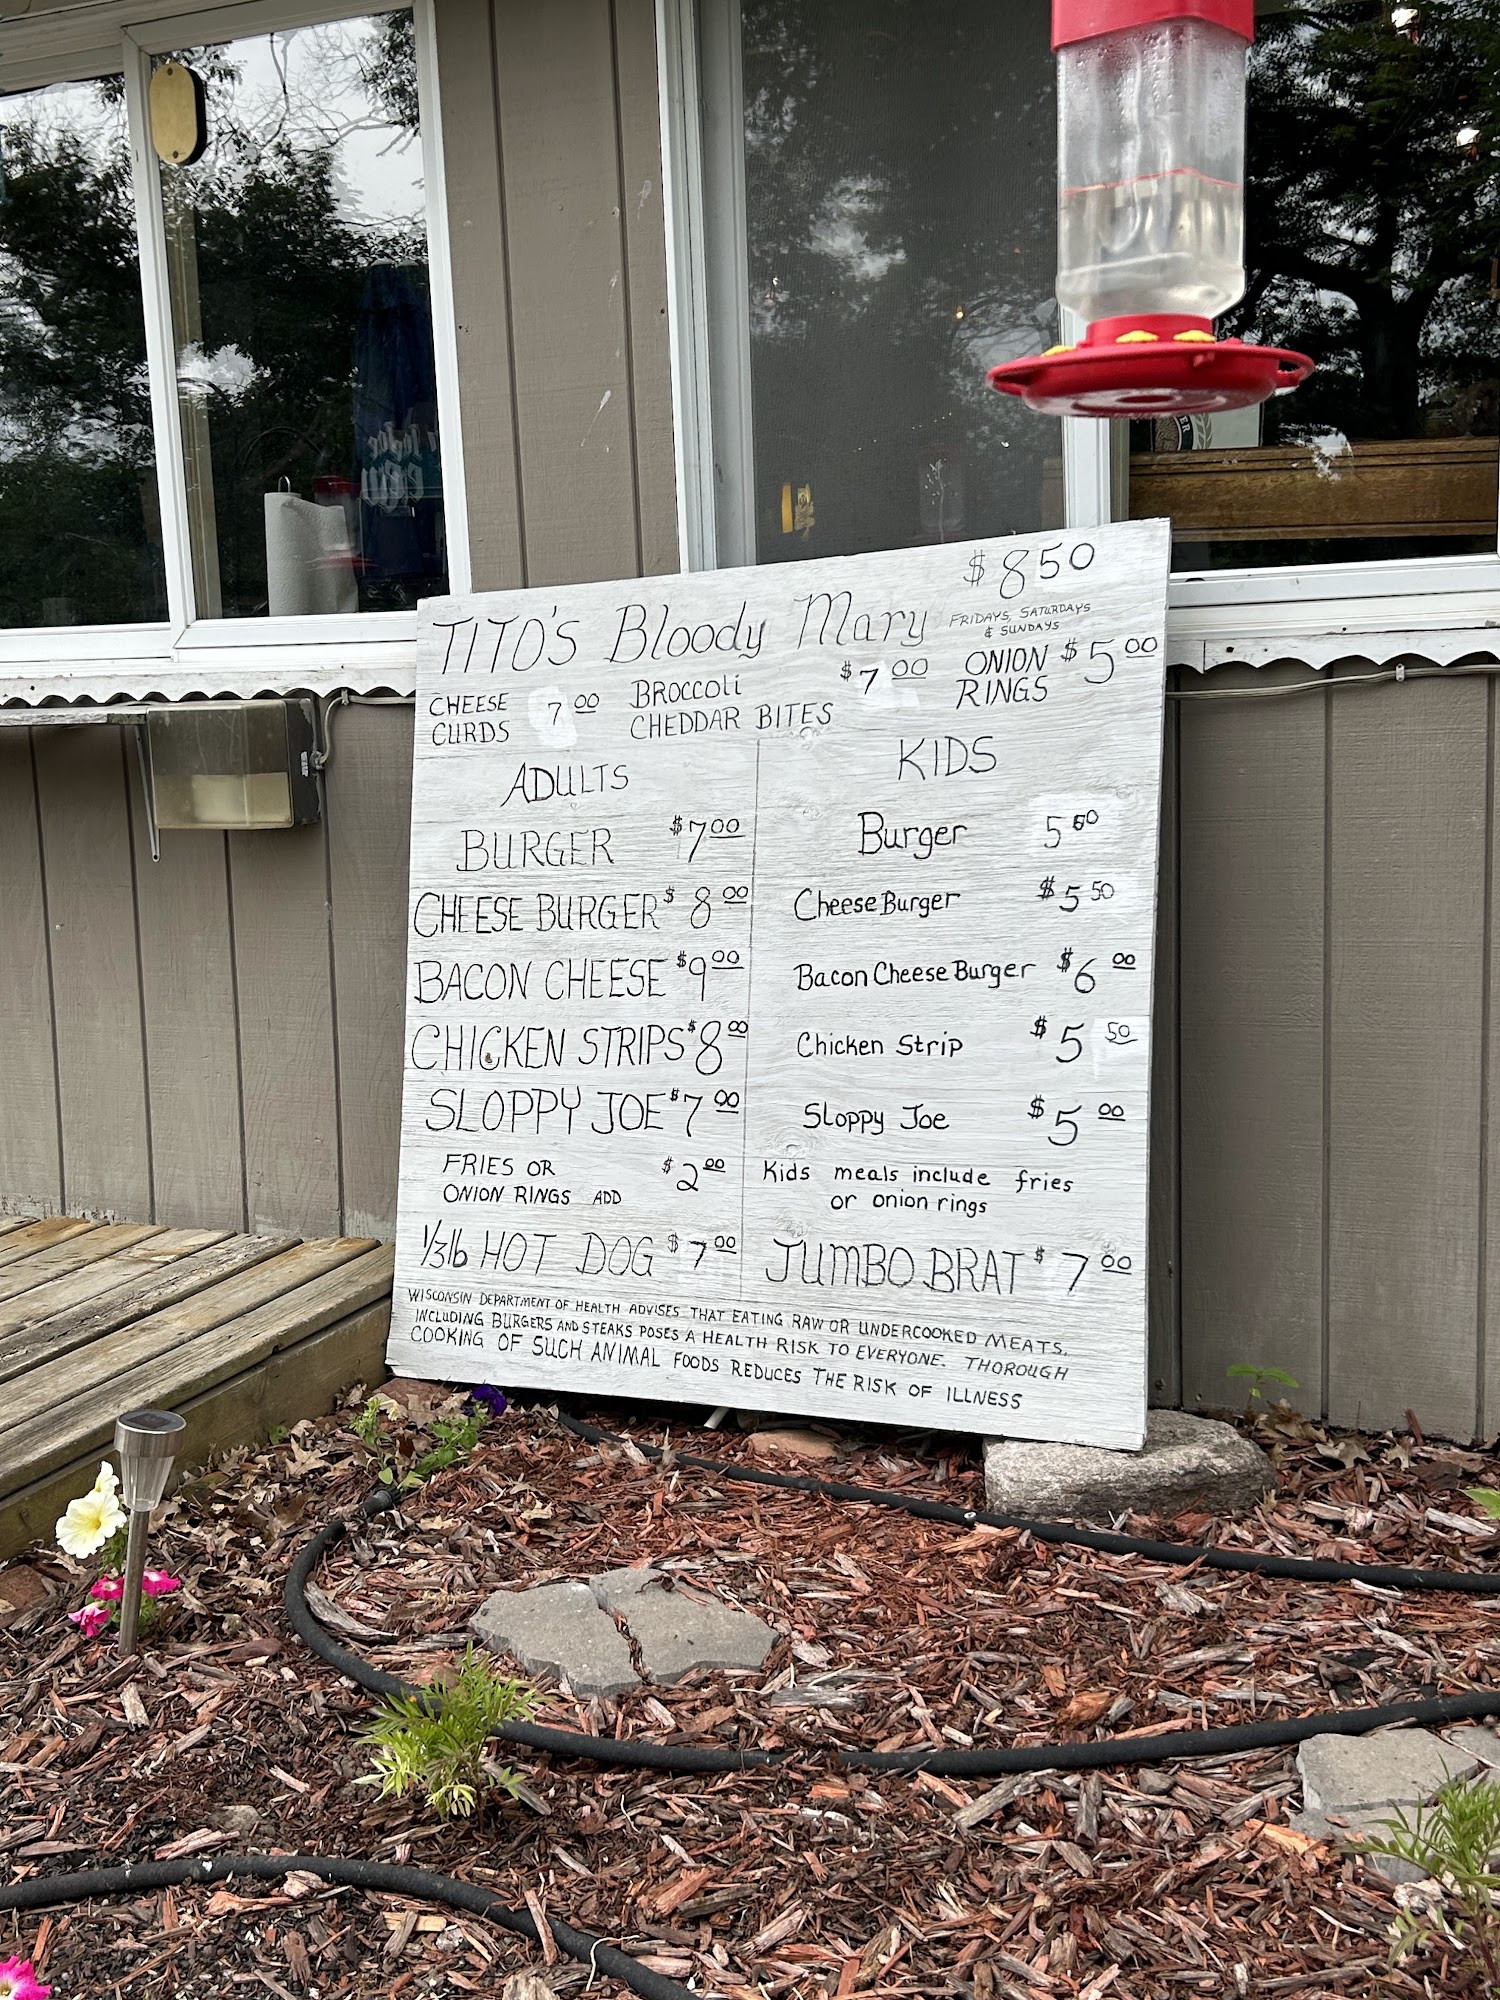 $ 8 50
TITO'S Bloody Mary
FRIDAYS, SATURDAYS
& SUNDAYS
CHEESE
CURDS
7 00
BROCCOLI
CHEDDAR BITES
$ 7 00
ONION
RINGS
$ 5 00
ADULTS
BURGER $ 7 00
CHEESE BURGER $ 8 00
BACON CHEESE $ 9 00
CHICKEN STRIPS $ 8 00
SLOPPY JOE $ 7 00
FRIES OR
ONION RINGS ADD
$ 2 00
1/3 lb HOT DOG $ 7 00
KIDS
Burger
Cheese Burger $ 5 50
Bacon Cheese Burger $ 6 00
Chicken Strip $ 5 50
Sloppy Joe $ 5 00
Kids meals include fries
or onion rings
JUMBO BRAT $ 7 00
WISCONSIN DEPARTMENT OF HEALTH ADVISES THAT EATING RAW OR UNDERCOOKED MEATS,
INCLUDING BURGERS AND STEAKS POSES A HEALTH RISK TO EVERYONE. THOROUGH
COOKING OF SUCH ANIMAL FOODS REDUCES THE RISK OF ILLNESS